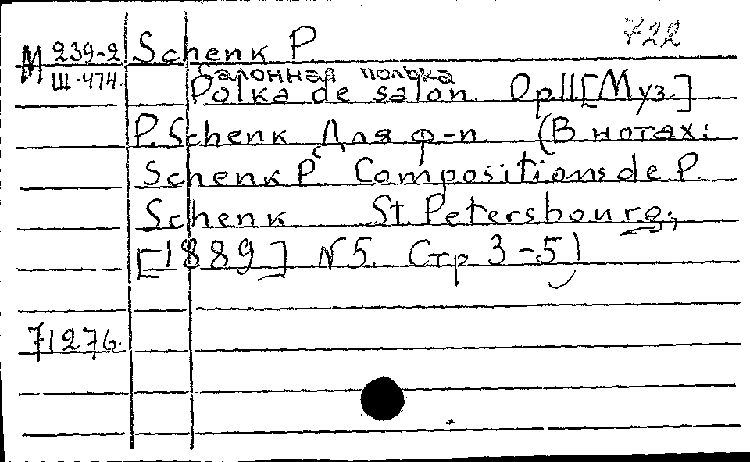 722
М 239-2 Schenk P
Ш-474. Салонная полька
Polka de salon Op11 [Муз.]
P. Schenk Для ф-п (В нотах:
Schenk P Compositions de P.
Schenk St. Petersbourg,
[1889] N5. Стр 3-5)
71276.